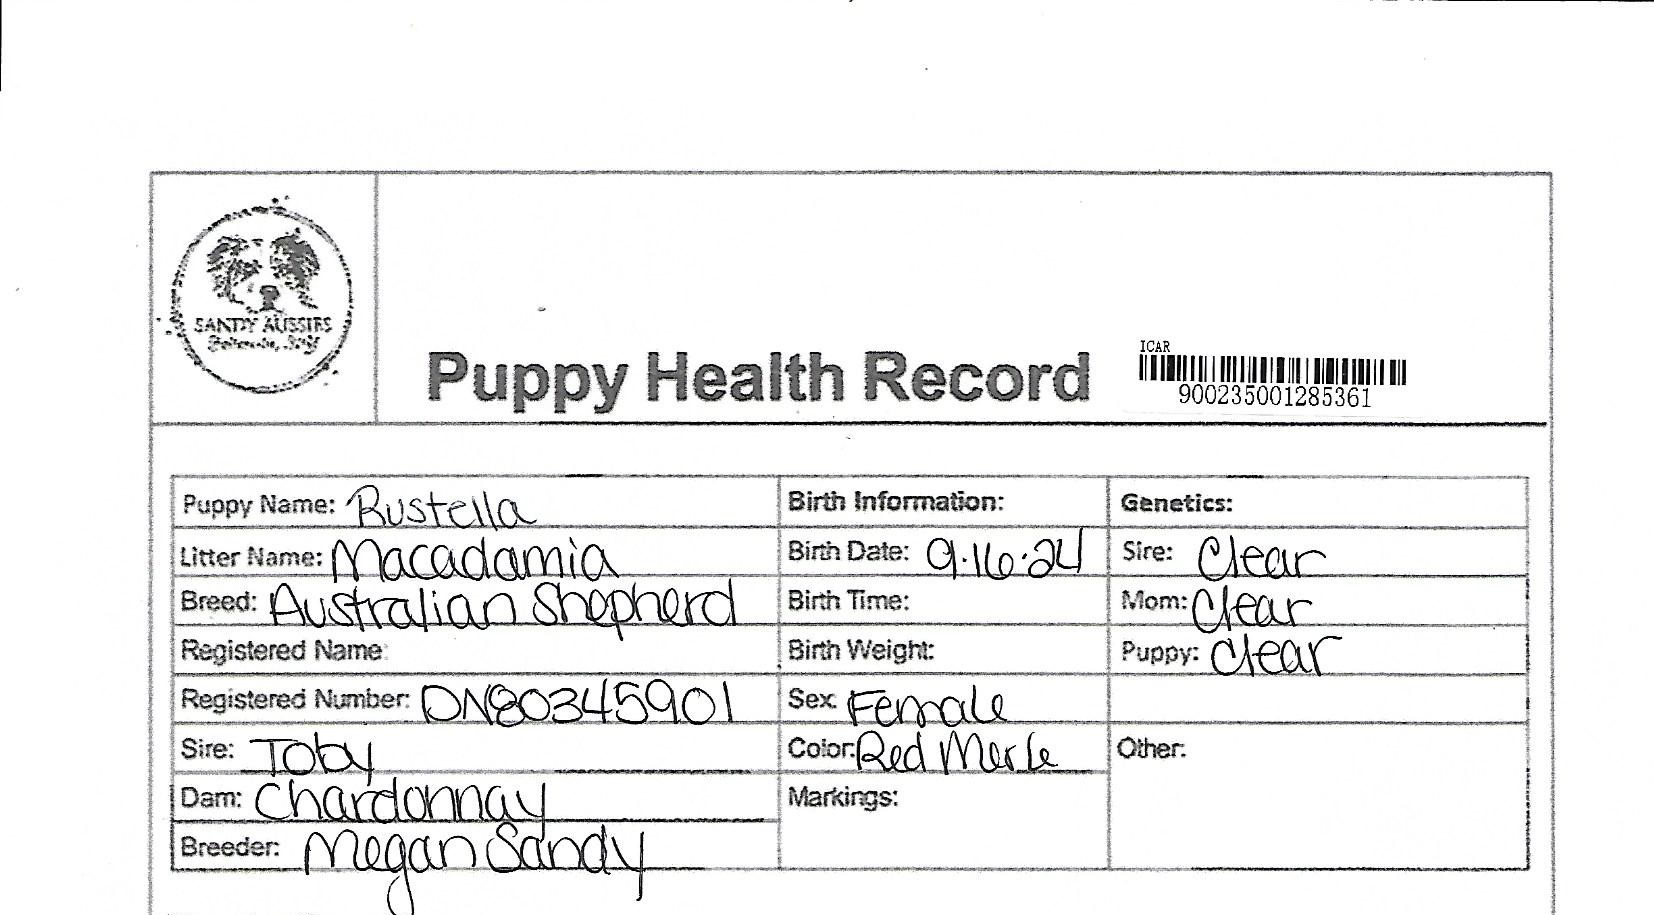 SANDY AUSSIES
Puppy Health Record
ICAR
900235001285361
Puppy Name: Rustella
Birth Information:
Genetics:
Litter Name: Macadamia
Birth Date: 9.16.24
Sire: Clear
Breed: Australian Shepherd
Birth Time:
Mom: Clear
Registered Name:
Birth Weight:
Puppy: Clear
Registered Number: DN80345901
Sex: Female
Sire: Toby
Color: Red Merle
Other:
Dam: Chardonnay
Markings:
Breeder: Megan Sandy